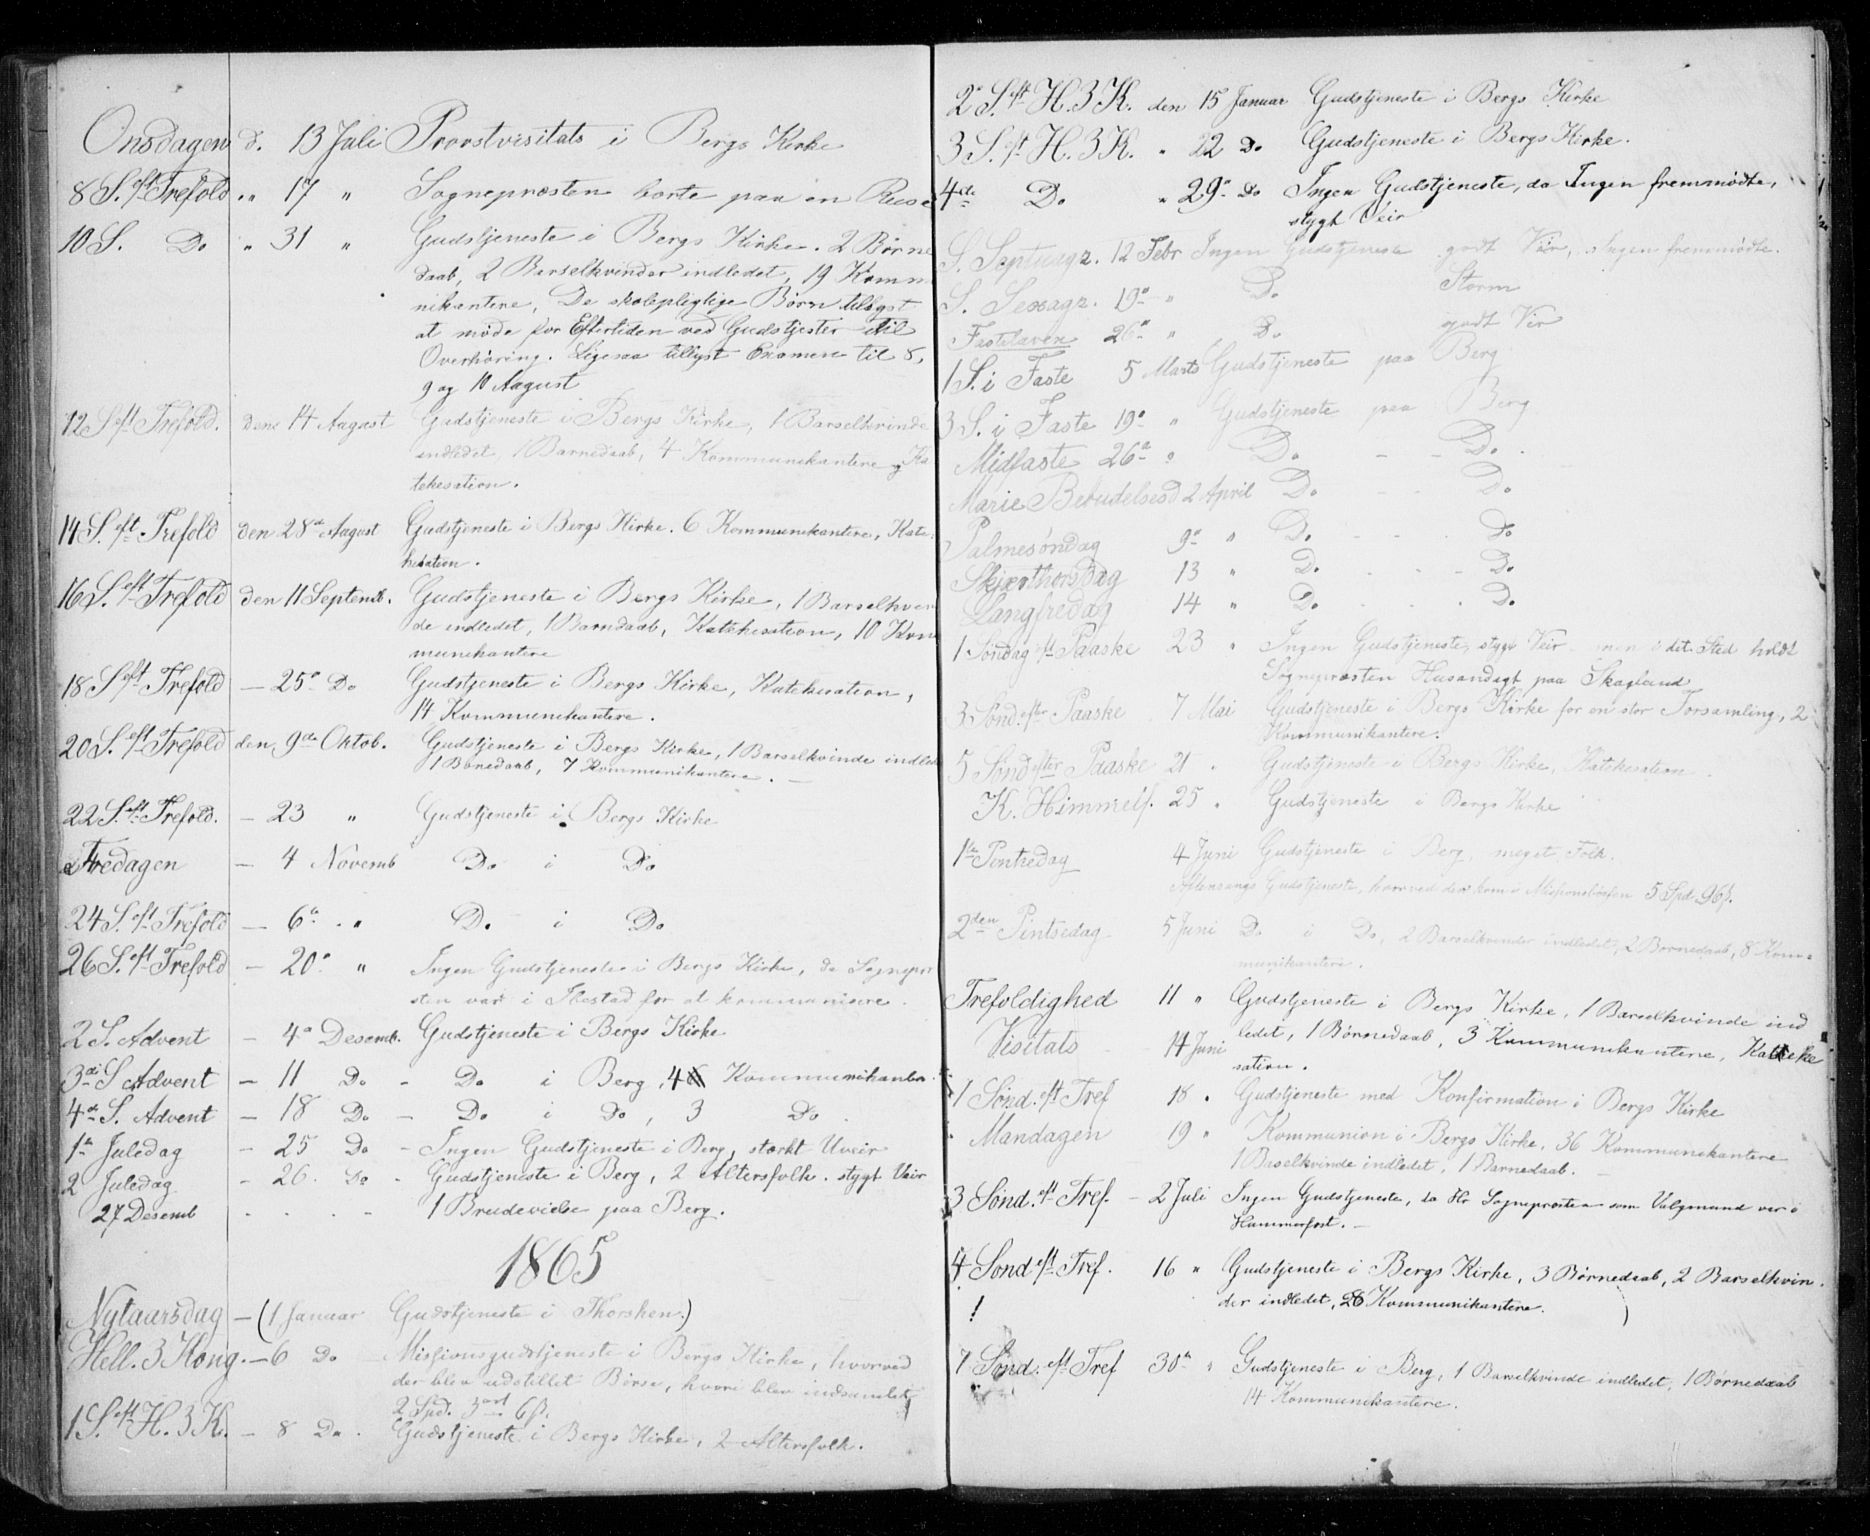 Onsdagen d. 13 Juli Proostvisitats i Bergs Kirke
8 S. eft Trefold „ 17 „ Sognepræsten borte paa en Reise
10 S. Do „ 31 „ Gudstjeneste i Bergs Kirke. 2 Børne
daab, 2 Barselkvinder indledet, 19 Komm
nikantere, De skolepligtige Børn tillyst
at møde for Eftertiden ved Gudstjester til
Overhøring. Ligesaa tillyst Examen til 8,
9 og 10 August
12 S eft Trefold. den 14 August Gudstjeneste i Bergs Kirke, 1 Barselkvinde
indledet, 1 Barnedaab, 4 Kommunikantere og Ka
tekesation.
14 S. eft Trefold den 28de August Gudstjeneste i Bergs Kirke. 6 Kommunikantere, Kate-
kesation.
16 S. eft Trefold den 11 Septemb. Gudstjeneste i Bergs Kirke, 1 Barselkvin
de indledet, 1 Barndaab, Katekesation, 10 Kom
munikantere
18 S eft Trefold — 25de Do Gudstjeneste i Bergs Kirke, Katekesation,
14 Kommunikantere.
20 S. eft Trefold den 9de Oktob. Gudstjeneste i Bergs Kirke, 1 Barselkvinde indled
1 Børnedaab, 7 Kommunikantere. —
22 S. eft Trefold. — 23 „ Gudstjeneste i Bergs Kirke
Fredagen — 4 Novemb Do i Do
24 S. eft Trefold — 6te „ Do i Do
26 S. eft Trefold — 20de „ Ingen Gudstjeneste i Bergs Kirke, da Sognepræ
sten var i Ibestad for at kommunisere.
2 S. Advent — 4de Desemb. Gudstjeneste i Bergs Kirke
3die S Advent — 11 Do - Do i Berg, 4 Kommunikanter.
4de S. Advent — 18 Do - Do i Do, 3 Do.
1te Juledag — 25 Do - Ingen Gudstjeneste i Berg, stærkt Uveir
2 Juledag - 26. Do - Gudstjeneste i Berg, 2 Altersfolk. stygt Veir
27 Desemb - - - - 1 Brudevielse paa Berg.
1865
Nytaarsdag — (1 Januar Gudstjeneste i Thorsken.)
Hell. 3 Kong. — 6 Do Missionsgudstjeneste i Bergs Kirke, hvorved
der blev udstillet Bøsse, hvori blev indsamlet
2 Spd. 3 ort 6 ß.
1 S. eft H. 3 K. — 8 Do. Gudstjeneste i Bergs Kirke, 2 Altersfolk.
2 S. eft H. 3 K. den 15 Januar Gudstjeneste i Bergs Kirke
3 S. eft H. 3 K. „ 22 Do Gudstjeneste i Bergs Kirke.
4de Do „ 29de Do Ingen Gudstjeneste, da Ingen fremmødte,
stygt Veir
S. Septuagz. 12 Febr Ingen Gudstjeneste godt Veir, Ingen fremmødte.
S. Sexagz. 19de „ Do Storm
Fastelaven 26de „ Do godt Veir
1 S. i Faste 5 Marts Gudstjeneste paa Berg
3 S. i Faste 19de „ Gudstjeneste paa Berg
Midfaste 26de „ Do - - Do.
Marie Bebudelsesd 2 April Do - - Do
Palmesøndag 9de „ Do - - - Do
Skjærthorsdag 13 „ Do - - - Do
Langfredag 14 „ Do - - - Do
1 Søndag eft Paaske 23 „ Ingen Gudstjeneste, stygt Veir - men i det Sted holdt
Sognepræsten Husandagt paa Skagland
3 Sønd. efter Paaske 7 Mai Gudstjeneste i Bergs Kirke for en stor Forsamling, 2
Kommunikantere.
5 Sønd efter Paaske 21 „ Gudstjeneste i Bergs Kirke, Katekesation.
K. Himmelf. 25 „ Gudstjeneste i Bergs Kirke
1te Pintsedag 4 Juni Gudstjeneste i Berg, meget Folk.
Aftensangs Gudstjeneste, hvorved der kom i Missionsbøssen 5 Spd 96 ß.
2den Pintsedag 5 Juni Do i Do, 2 Barselkvinder indledet, 2 Børnedaab, 8 Kom-
munikantere.
Trefoldighed 11 „ Gudstjeneste i Bergs Kirke, 1 Barselkvinde ind
ledet, 1 Børnedaab, 3 Kommunikantere, Kateke
sation.
Visitats 14 Juni
1 Sønd. eft Tref 18 „ Gudstjeneste med Konfirmation i Bergs Kirke
Mandagen 19 „ Kommunion i Bergs Kirke, 36 Kommunikantere
1 Baselkvinde indledet, 1 Barnedaab. —
3 Sønd. eft Tref. — 2 Juli Ingen Gudstjeneste, da Hr Sognepræsten som Valgmand var i
Hammerfest. —
4 Sønd eft Tref. 16 „ Gudstjeneste i Bergs Kirke, 3 Børnedaab, 2 Barselkvin-
der indledet, 26 Kommunikantere.
7 Sønd. eft Tref 30te „ Gudstjeneste i Berg, 1 Barselkvinde indledet, 1 Børnedaab
14 Kommunikantere.